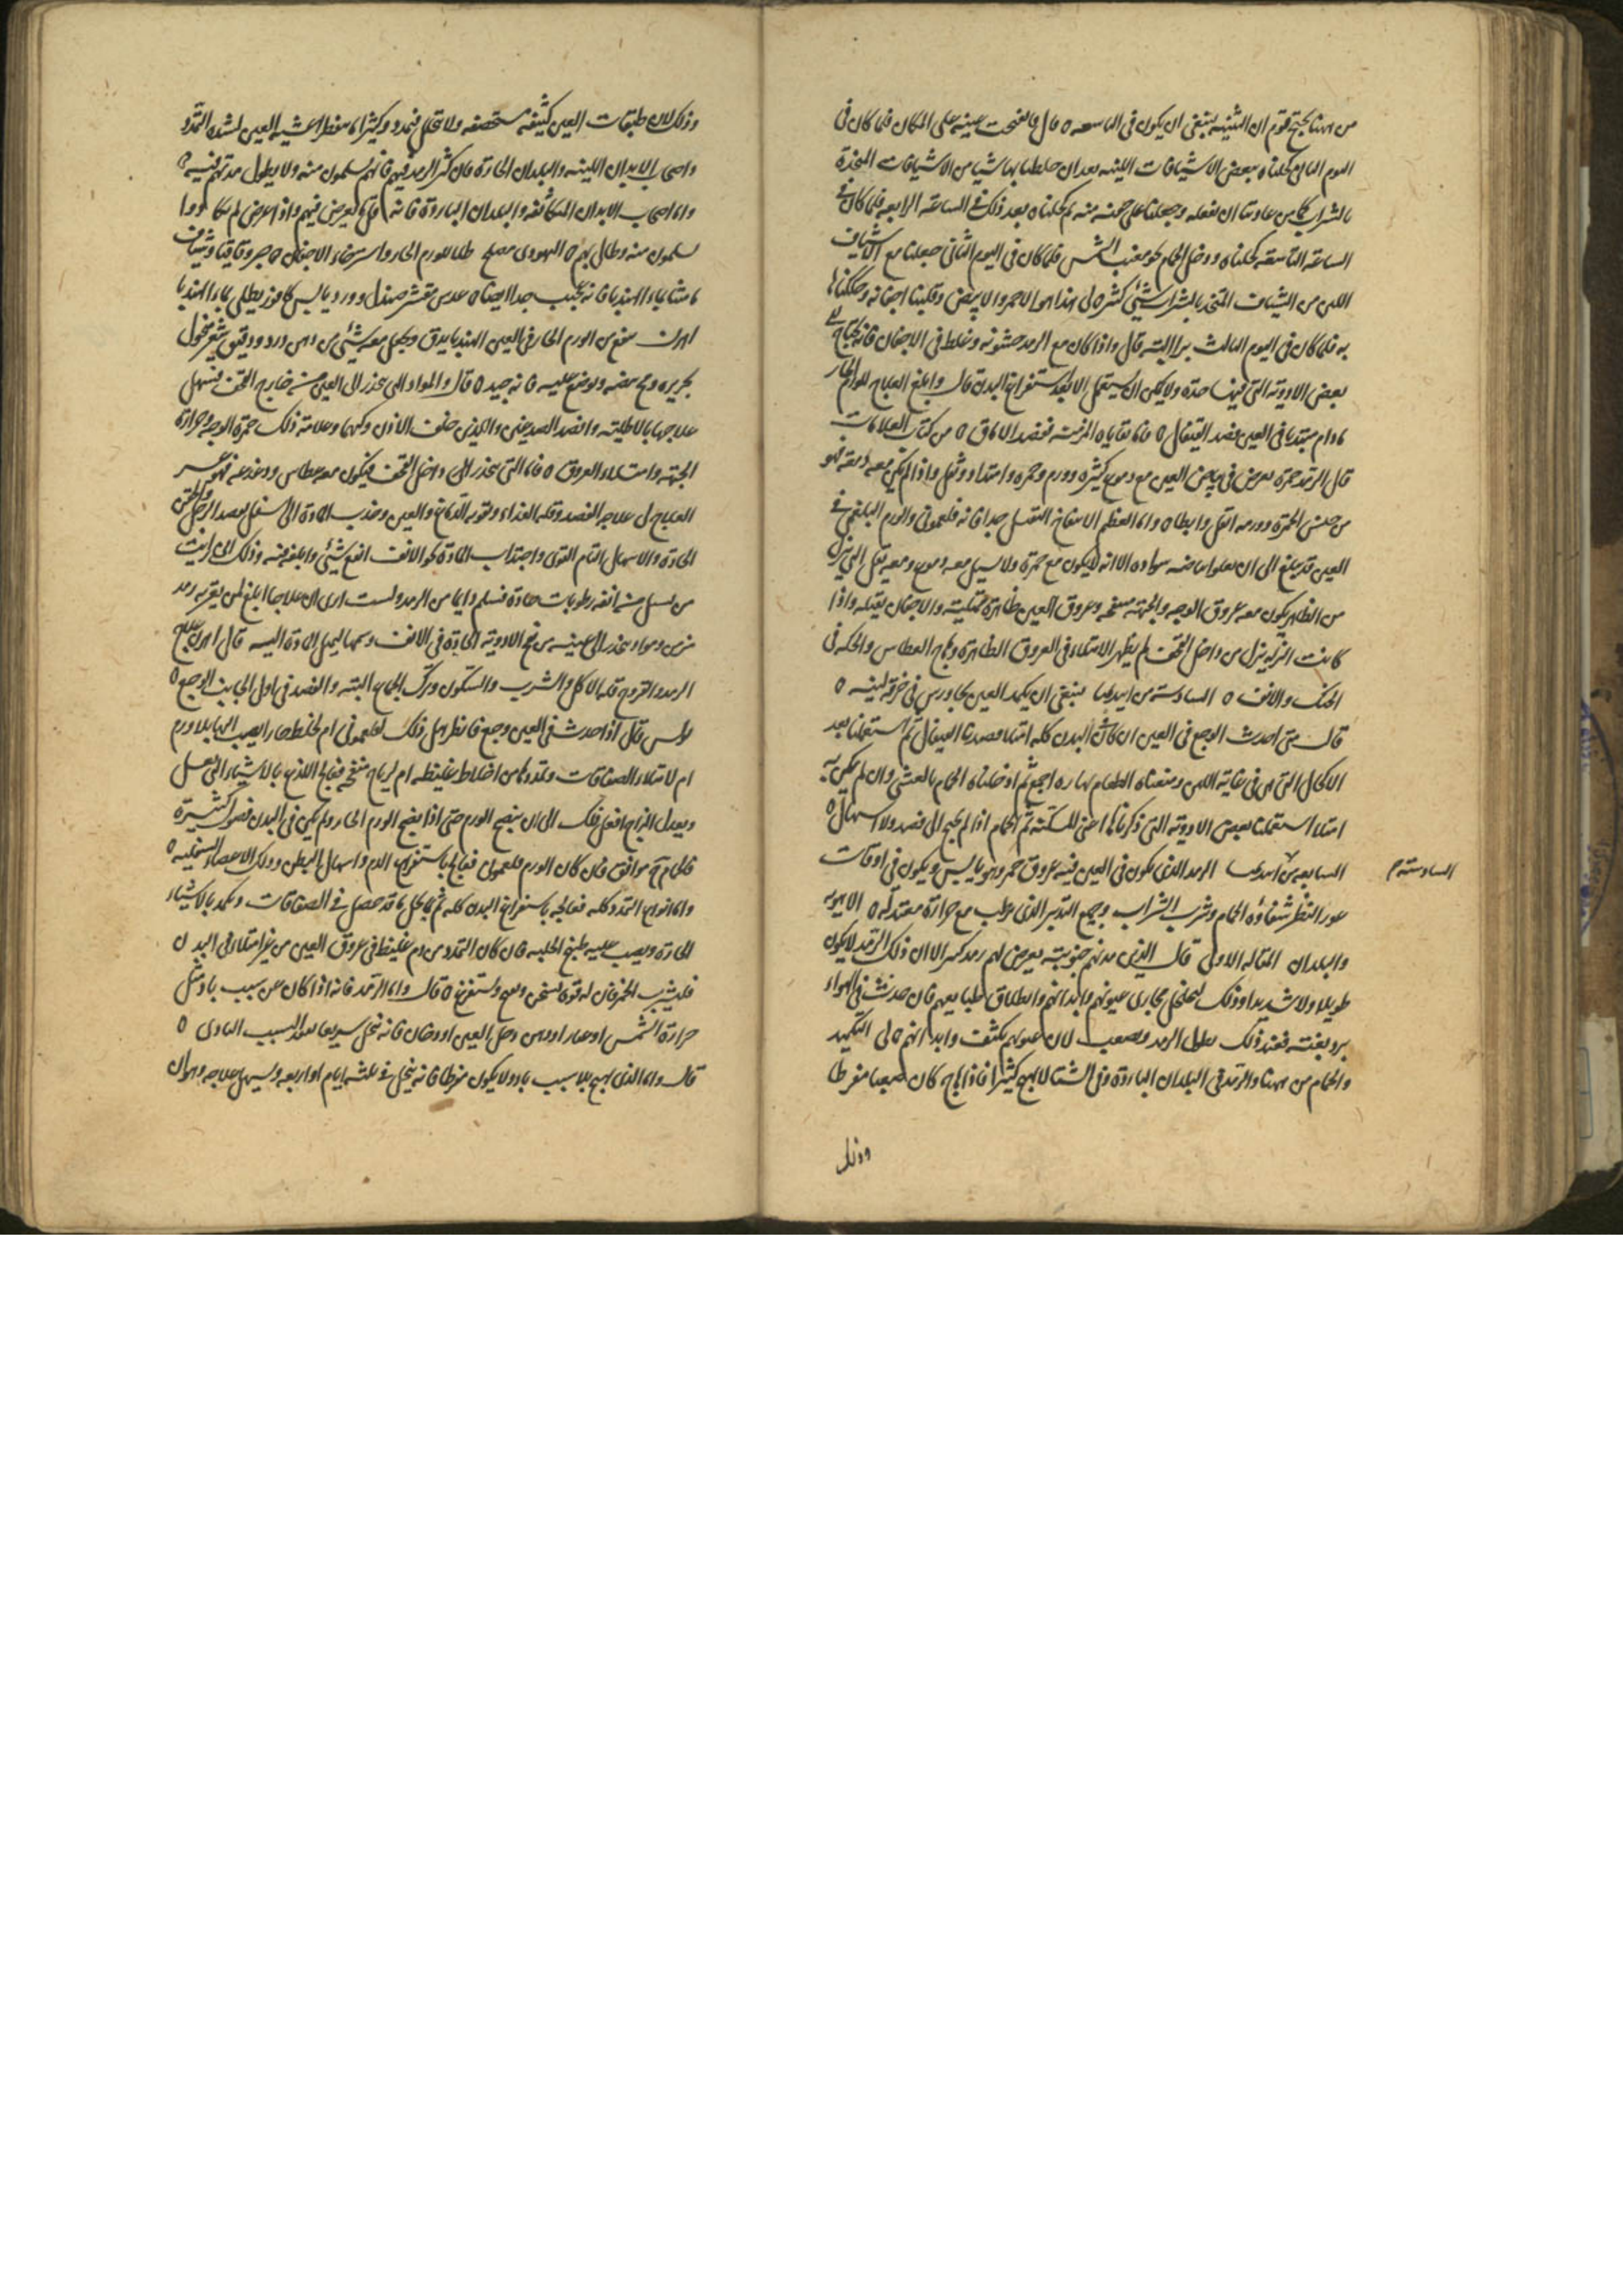 من ههنا يحتج قوم ان التنبيه ينبغى ان يكون فى التاسعه ٥ قال فانفتحت عينه على المكان فلما كان فى
اليوم الثانى كحلناه ببعض الاشيافات اللينه بعد ان خلطنا بها شيا من الاشيافات المتخذة
بالشراب كما من عادتنا ان نفعله وجعلنا على منه ثم كحلناه بعد ذلك فى الساعة الرابعه فلما كان فى
الساعة التاسعة كحلناه ودخل الحمام نحو مغيب الشمس فلما كان فى اليوم الثانى جعلنا مع الاشياف
اللين من الشياف المتخذ بالشراب شئ كثير ٥ لى هذا هو الاحمر والابيض وقلبنا اجفانه وحككناها
به فلما كان فى اليوم الثالث برا البتة قال واذا كان مع الرمد خشونه وغلظ فى الاجفان فانه يحتاج الى
بعض الادوية التى فيها حدة ولا يمكن ان يستعمل الا بعد استفراغ البدن قال وابلغ العلاج للورم الحار
مادام مبتديا فى العين فصد القيفال ٥ فاما بقاياه المزمنة ففصد الاماق ٥ من كتاب العلامات
قال الرمد حمرة تعرض فى بياض العين مع دموع كثيرة وورم وحمره وامتداد وثقل واذا لم يكن معه دمعه فهو
من جنس الحمرة وورمه اقل وابطاه واما العظم الانتفاخ الثقيل جدا فانه فلغمونى والورم البلغمى فى
العين قد يبلغ الى ان يعلو بياضه سواده الا انه لا يكون مع حمرة ولا يسيل معه دموع ومعه ثقل التى تنزل
من الظاهر يكون معه عروق الوجه والجبهة منتفخه وعروق العين ظاهرة ممتلية والاجفان ثقيله واذا
كانت النزله تنزل من داخل القحف لم يظهر الامتلاء فى العروق الظاهرة وهاج العطاس والحكه فى
الحنك والانف ٥ السادسة من ابيديميا ينبغى ان يكمد العين بجاورس فى خرقة لينه ٥
قال متى احدث الوجع فى العين ان كان البدن كله ممتليا فصدنا القيفال ثم استعملنا بعد
الاكحال التى هى فى غاية اللين ومنعناه الطعام نهاره اجمع ثم ادخلناه الحمام بالعشى وان لم يكن به
امتلا استعملنا بعض الادوية التى ذكرناها اعنى المسكنة ثم الحمام اذا لم يحتج الى فصد ولا اسهال ٥
السابعه من ابيديميا الرمد الذى يكون فى العين فيه عروق حمر وهو يابس ويكون فى اوقات
السادسة م
عور النظر شفاؤه الحمام وشرب الشراب وجميع التدبير الذى يرطب مع حرارة معتدله ٥ الاهويه
والبلدان المقاله الاولى قال الذين مدنهم جنوبية يعرض لهم رمد كثير الا ان ذلك الرمد لا يكون
طويلا ولا شديدا وذلك لتخلخل مجارى عيونهم وابدانهم وانطلاق طبايعهم فان حدث فى الهواء
برد بغتة فعند ذلك يطول الرمد ويصعب لان عيونهم تكثف وابدانهم ٥ لى التكميد
والحمام من ههنا والرمد فى البلدان الباردة وفى الشتا لا يهيج كثيرا فاذا هاج كان صعبا مفرطا
وذلك
وذلك لان طبقات العين كثيفه مستحصفه ولا تتحلل فتمدد وكثيرا ما تنفطر اغشية العين لشدة التمدد
واصحاب الابدان اللينه والبلدان الحارة فان كثر الرمد فيهم فانهم يسلمون منه ولا يطول مدتهم فيه
واما اصحاب الابدان المتكاثفة والبلدان الباردة فانه قل ما يعرض فيهم واذا عرض لم يكادوا
يسلمون منه وطال بهم ٥ اليهودى مصلح طلا للورم الحار واسترخاء الاجفان ٥ صبر وقاقيا وشياف
ماميثا بماء الهندبا فانه عجيب جدا ايضا ٥ عدس مقشر صندل وورد يابس كافور يطلى بماء الهندبا
اهرن ينفع من الورم الحار فى العين الهندبا يدق ويجعل معه شئ من دهن ورد ودقيق شعير منخول
بحريرة ومح بيضه ويوضع عليه فانه جيد ٥ قال والمواد التى تنحدر الى العين منه خارج القحف فيسهل
علاجها بالاطلية وافصد الصدغين والذين خلف الاذن وكيهما وعلامة ذلك حمرة الوجه وحرارة
الجبهة وامتلاء العروق ٥ فاما التى تنحدر الى داخل القحف فيكون معه عطاس ودغدغه فهو عسر
العلاج لى علاجه الفصد وقلة الغذاء وتقوية الدماغ والعين وجذب المادة الى اسفل بفصد الرجل والحقن
الحادة والاسهال التام القوى واجتذاب المادة نحو الانف انفع شئ وابلغه فيه وذلك انى رايت
من يسيل من انفه رطوبات حادة فسلم دايما من الرمد ولست ارى ان علاجا ابلغ لمن يعتريه رمد
مزمن ومواد تنحدر الى عينيه من نفخ الادوية الحادة فى الانف وشمها ليميل المادة اليه قال اهرن علاج
الرمد والقروح قلة الاكل والشرب والسكون وترك الجماع البتة والفصد فى اول الجانب الوجع ٥
بولس قال اذا حدث فى العين وجع فانظر هل ذلك لفلغمونى ام لخلط حار ينصب اليها بلا ورم
ام لامتلاء الصفاقات وتمددها من اخلاط غليظه ام لرياح منفخه فعالج اللذع بالاشياء التى تعسل
ويعدل المزاج افعل ذلك الى ان ينضج الورم حتى اذا نضج الورم الحار ولم يكن فى البدن فضول كثيرة
فالحمام ح موافق فان كان الورم فلغمونى فعالج باستفراغ الدم واسهال البطن ودلك الاعضاء السفليه ٥
واما انواع التمدد كله فعالجه باستفراغ البدن كله ثم ما يحلل ما قد حصل فى الصفاقات وتكمد بالاشياء
الحارة ويصب عليه طبيخ الحلبه فان كان التمدد من دم غليظ فى عروق العين من غير امتلاء فى البدن
فليشرب الخمر فان له قوة تسخن وتفتح وتستفرغ ٥ قال واما الرمد فانه اذا كان عن سبب باد مثل
حرارة الشمس او غبار او دهن دخل العين او دخان فانه تنحل سريعا بعد السبب البادى ٥
قال واما الذى يهيج بلا سبب باد ولا يكون مفرطا فانه ينحل فى ثلثه ايام او اربعه ويسهل علاجه وهو ان